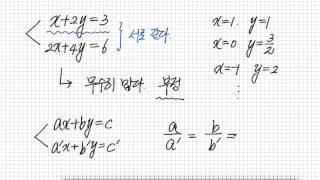 x+2y=3
2x+4y=6
서로 같다.
x=1. y=1
x=0 y=3/2
x=-1 y=2
⋮
↳ 무수히 많다. 부정
ax+by=c
a'x+b'y=c'
a/a' = b/b' =